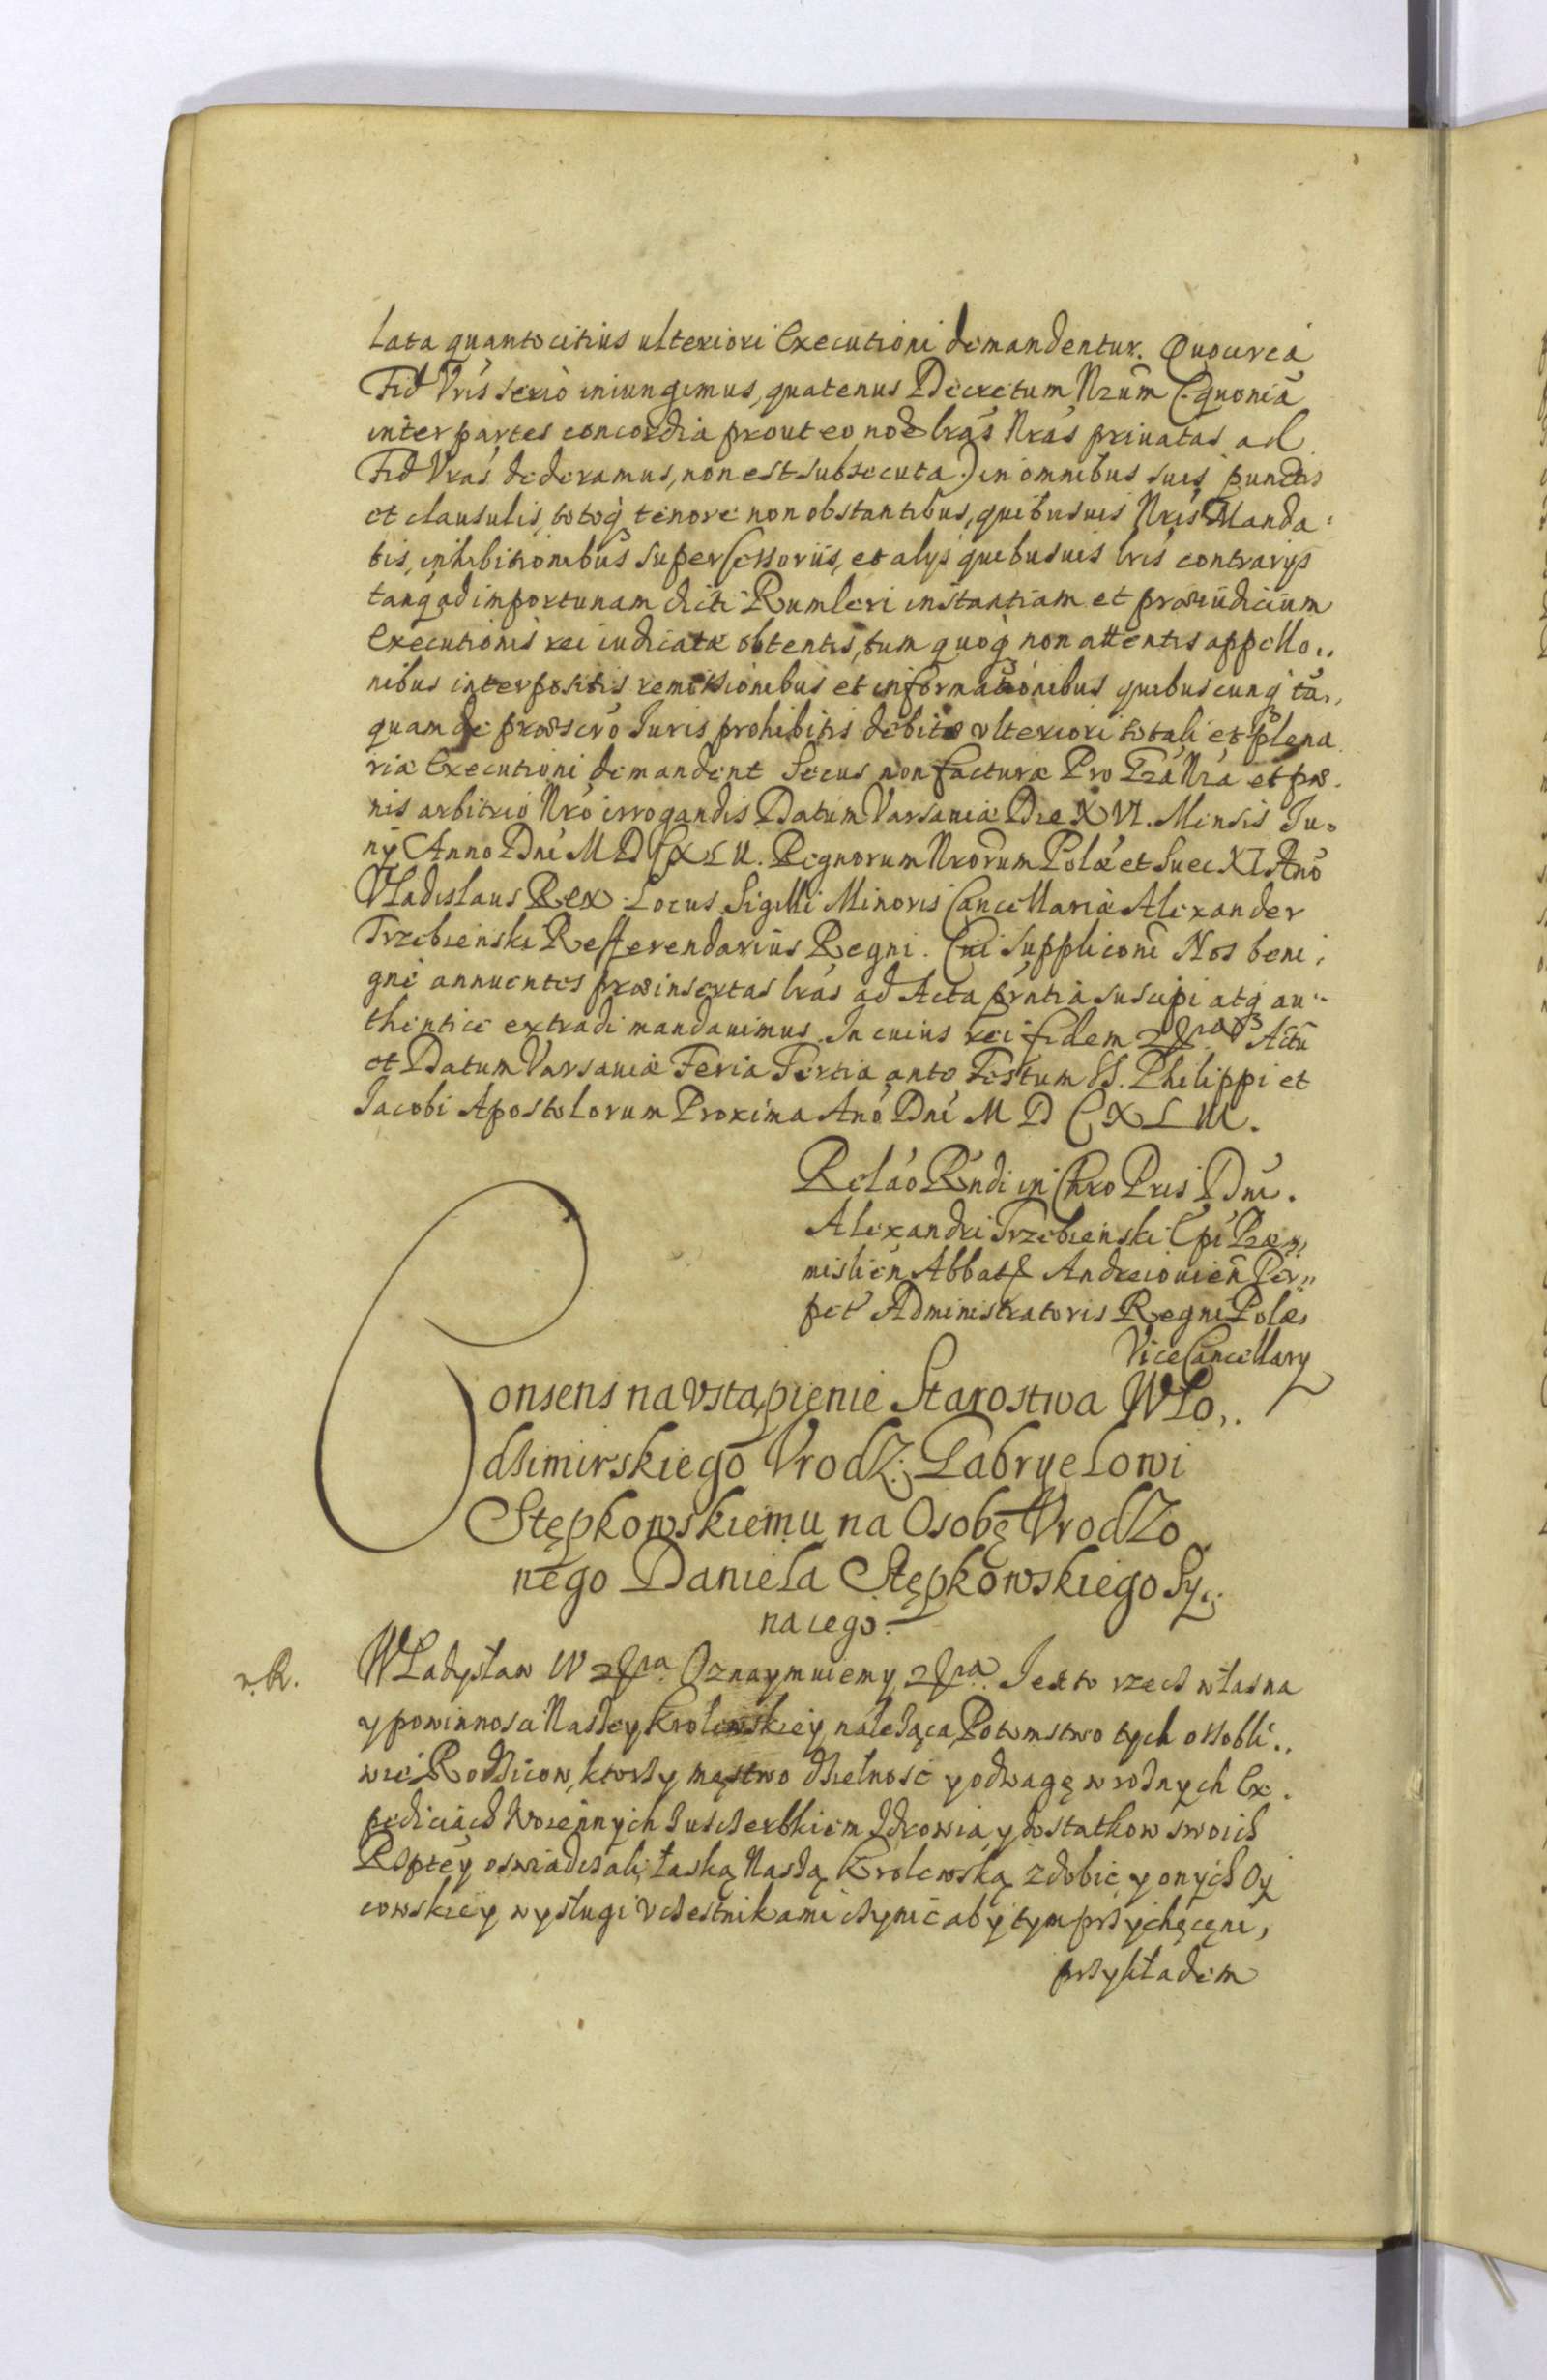 lata quantocitius ulteriori Executioni demandentur. Quocircá
Fid Vrís serió iniungimus, quatenus Decretum Nrũm (quoniã
inter partes concordia prout eo noẽ lrás Nrás priuatas ad
Fid Vrás dederamus, non est subsecuta.) in omnibus suis punctis
et clausulis, totoq́ tenore non obstantibus, quibusuis Nrís Manda:
tis, inhibitionibus supersessoriis, et alÿs quibusuis lrís contrarÿs
tanq́ ad importunam dicti Rumleri instantiam et præiudicium
Executionis rei iudicatæ obtentis, tum quoq́ non attentis appello,,
nibus interpositis remissionibus et informationibus quibuscunq́ tá,,
quam de præscró Iuris prohibitis debitæ vlteriori totali et plena
riæ Executioni demandent Secus non facturæ Pro Grá Nrá et pœ.
nis arbitrio Nró irrogandis Datum Varsauiæ Die XVI. Mensis Iu,,
nÿ Anno Dní MDCXLII. Regnorum Nrorum Polæ et Suec XI Anó
Vladislaus Rex Locus Sigilli Minoris Cancellariæ Alexander
Trzebienski Refferendarius Regni. Cui Suppliconi Nos beni,
gné annuentes præinsertas lrás ad Acta prńtia suscipi atq́ au,,
thenticé extradi mandauimus. In cuius rei fidem Actũ
et Datum Varsauiæ Feria Tertia ante Festum SS. Philippi et
Iacobi Apostolorum Proxima Anó Dní MDCXLIII.
Reláo Rńdi in Chrõ Prís Dní.
Alexandri Trzebienski Epí Præ,,
mislień Abbatis Andreiouień Per,,
pet Administratoris Regni Polæ
Vice Cancellarÿ
Consens na Vstąpienie Starostwa Wło,,
dzimirskiego Vrodz: Gabryelowi
Stępkowskiemu na Osobę Vrodzo
nego Daniela Stępkowskiego Sy,,
na iego.
r. R. Władysław IV Oznaymuiemy Jest to rzecz własna
y powinnosci Naszey Krolewskiey należąca, Potomstwo tych ossobli,,
wié Rodzicow, ktorzy męstwo dzielność y odwagę w rożnych Ex,
pediciach Woiennych z uszczerbkiem zdrowia y dostatkow swoich
Rzptey oswiadczali, łaską Naszą Krolewską zdobić, y onych Oy
cowskiey wysługi vczestnikami czynić aby tym przychęceni,
przykładem